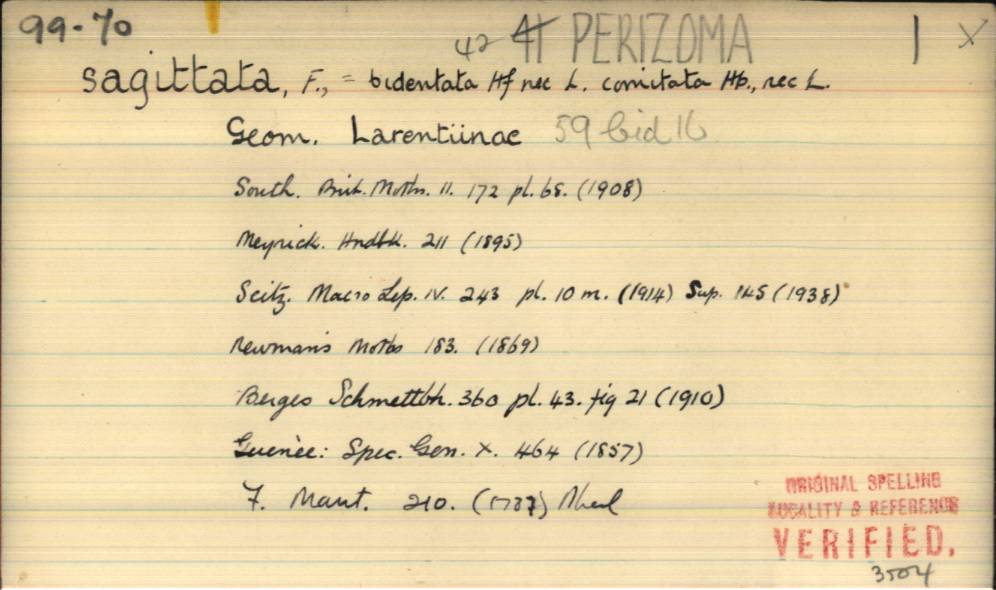 99-70
42 41 PERIZOMA 1 X
sagittata, F., = bidentata Hf nec L. comitata Hb., nec L.
Geom. Larentiinae 59 bid 16
South. Brit. Moths. II. 172 pl. 68. (1908)
Meyrick. Hndbk. 211 (1895)
Seitz. Macro Lep. IV. 243 pl. 10 m. (1914) Sup. 145 (1938)
Newman's Moths 183. (1869)
Berges Schmettbh. 360 pl. 43. fig 21 (1910)
Guenèe: Spec. Gen. X. 464 (1857)
F. Mant. 210. (1787)
ORIGINAL SPELLING
LOCALITY & REFERENCE
VERIFIED.
3504